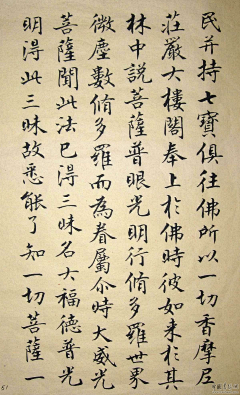 民并持七寶俱往佛所以一切香摩尼
莊嚴大樓閣奉上於佛時彼如来於其
林中説菩薩普眼光明行脩多羅世界
微塵數脩多羅而為眷屬尒時大威光
菩薩聞此法已得三昧名大福德普光
明得此三昧故悉能了知一切菩薩一
61